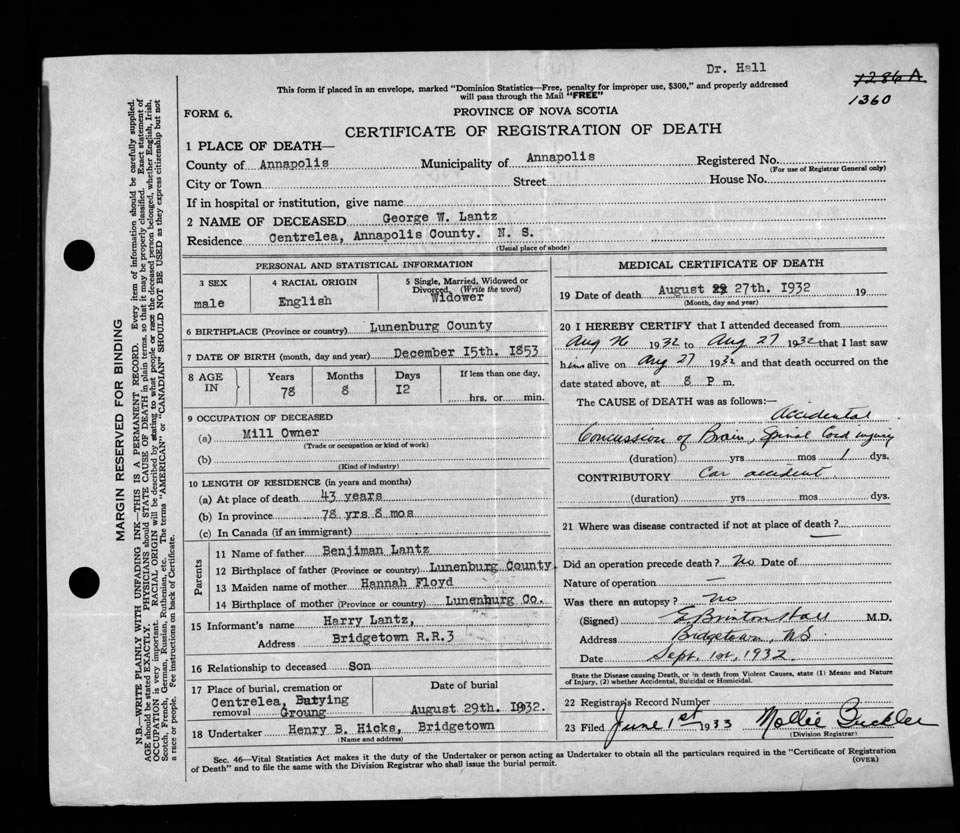 Dr. Hall
1286A
1360
This form if placed in an envelope, marked "Dominion Statistics—Free, penalty for improper use, $300," and properly addressed
will pass through the Mail "FREE"
FORM 6.
PROVINCE OF NOVA SCOTIA
CERTIFICATE OF REGISTRATION OF DEATH
1 PLACE OF DEATH—
County of Annapolis Municipality of Annapolis Registered No.
(For use of Registrar General only)
City or Town Street House No.
If in hospital or institution, give name
2 NAME OF DECEASED George W. Lantz
Residence Centrelea, Annapolis County. N. S.
(Usual place of abode)
PERSONAL AND STATISTICAL INFORMATION
3 SEX
male
4 RACIAL ORIGIN
English
5 Single, Married, Widowed or
Divorced (Write the word)
Widower
6 BIRTHPLACE (Province or country) Lunenburg County
7 DATE OF BIRTH (month, day and year) December 15th. 1853
8 AGE
IN
Years
78
Months
8
Days
12
If less than one day,
hrs. or min.
9 OCCUPATION OF DECEASED
(a) Mill Owner
(Trade or occupation or kind of work)
(b)
(Kind of industry)
10 LENGTH OF RESIDENCE (in years and months)
(a) At place of death 43 years
(b) In province 78 yrs 8 mos
(c) In Canada (if an immigrant)
Parents
11 Name of father Benjiman Lantz
12 Birthplace of father (Province or country) Lunenburg County
13 Maiden name of mother Hannah Floyd
14 Birthplace of mother (Province or country) Lunenburg Co.
15 Informant's name Harry Lantz,
Address Bridgetown R.R.3
16 Relationship to deceased Son
17 Place of burial, cremation or
Centrelea, Butying
removal Groung
Date of burial
August 29th. 1932.
18 Undertaker Henry B. Hicks, Bridgetown
(Name and address)
MEDICAL CERTIFICATE OF DEATH
19 Date of death August 27th. 1932 19
(Month, day and year)
20 I HEREBY CERTIFY that I attended deceased from
Aug 26 1932 to Aug 27 1932 that I last saw
him alive on Aug 27 1932 and that death occurred on the
date stated above, at 8 P. m.
The CAUSE of DEATH was as follows:—
Accidental
Concussion of Brain, Spinal Cord injury
(duration) yrs mos 1 dys.
CONTRIBUTORY Car accident
(duration) yrs mos dys.
21 Where was disease contracted if not at place of death? —
Did an operation precede death? No Date of
Nature of operation —
Was there an autopsy? No
(Signed) E Brinton Hall M.D.
Address Bridgetown, NS
Date Sept. 1st, 1932.
State the Disease causing Death, or in death from Violent Causes, state (1) Means and Nature
of Injury, (2) whether Accidental, Suicidal or Homicidal.
22 Registrar's Record Number
23 Filed June 1st 1933 Nollie Buckler
(Division Registrar)
Sec. 46—Vital Statistics Act makes it the duty of the Undertaker or person acting as Undertaker to obtain all the particulars required in the "Certificate of Registration
of Death" and to file the same with the Division Registrar who shall issue the burial permit.
(OVER)
MARGIN RESERVED FOR BINDING
N.B.—WRITE PLAINLY WITH UNFADING INK—THIS IS A PERMANENT RECORD. Every item of information should be carefully supplied.
AGE should be stated EXACTLY. PHYSICIANS should STATE CAUSE OF DEATH in plain terms, so that it may be properly classified. Exact statement of
OCCUPATION is very important. RACIAL ORIGIN will be described by stating to what people or race the deceased person belonged, whether English, Irish,
Scotch, French, German, Russian, Ruthenian, etc. The terms "AMERICAN" or "CANADIAN" SHOULD NOT BE USED as they express citizenship but not
a race or people. Fee instructions on back of Certificate.